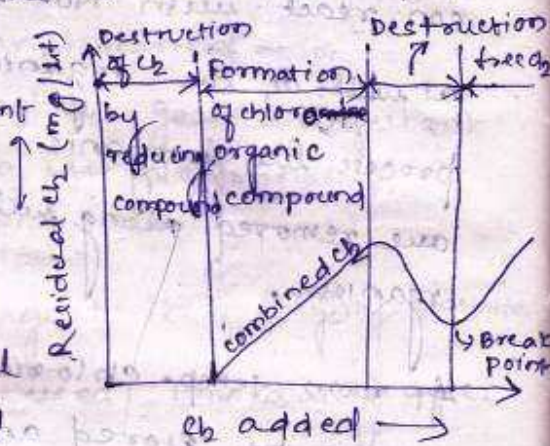 Destruction
of Cl2
by
reducing
compound
Formation
of chloro
organic
compound
Destruction
free Cl2
Residual Cl2 (mg/lit)
combined Cl2
Break
point
Cl2 added